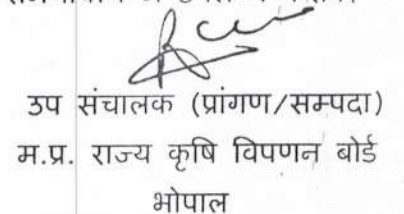 उप संचालक (प्रांगण/सम्पदा)
म.प्र. राज्य कृषि विपणन बोर्ड
भोपाल